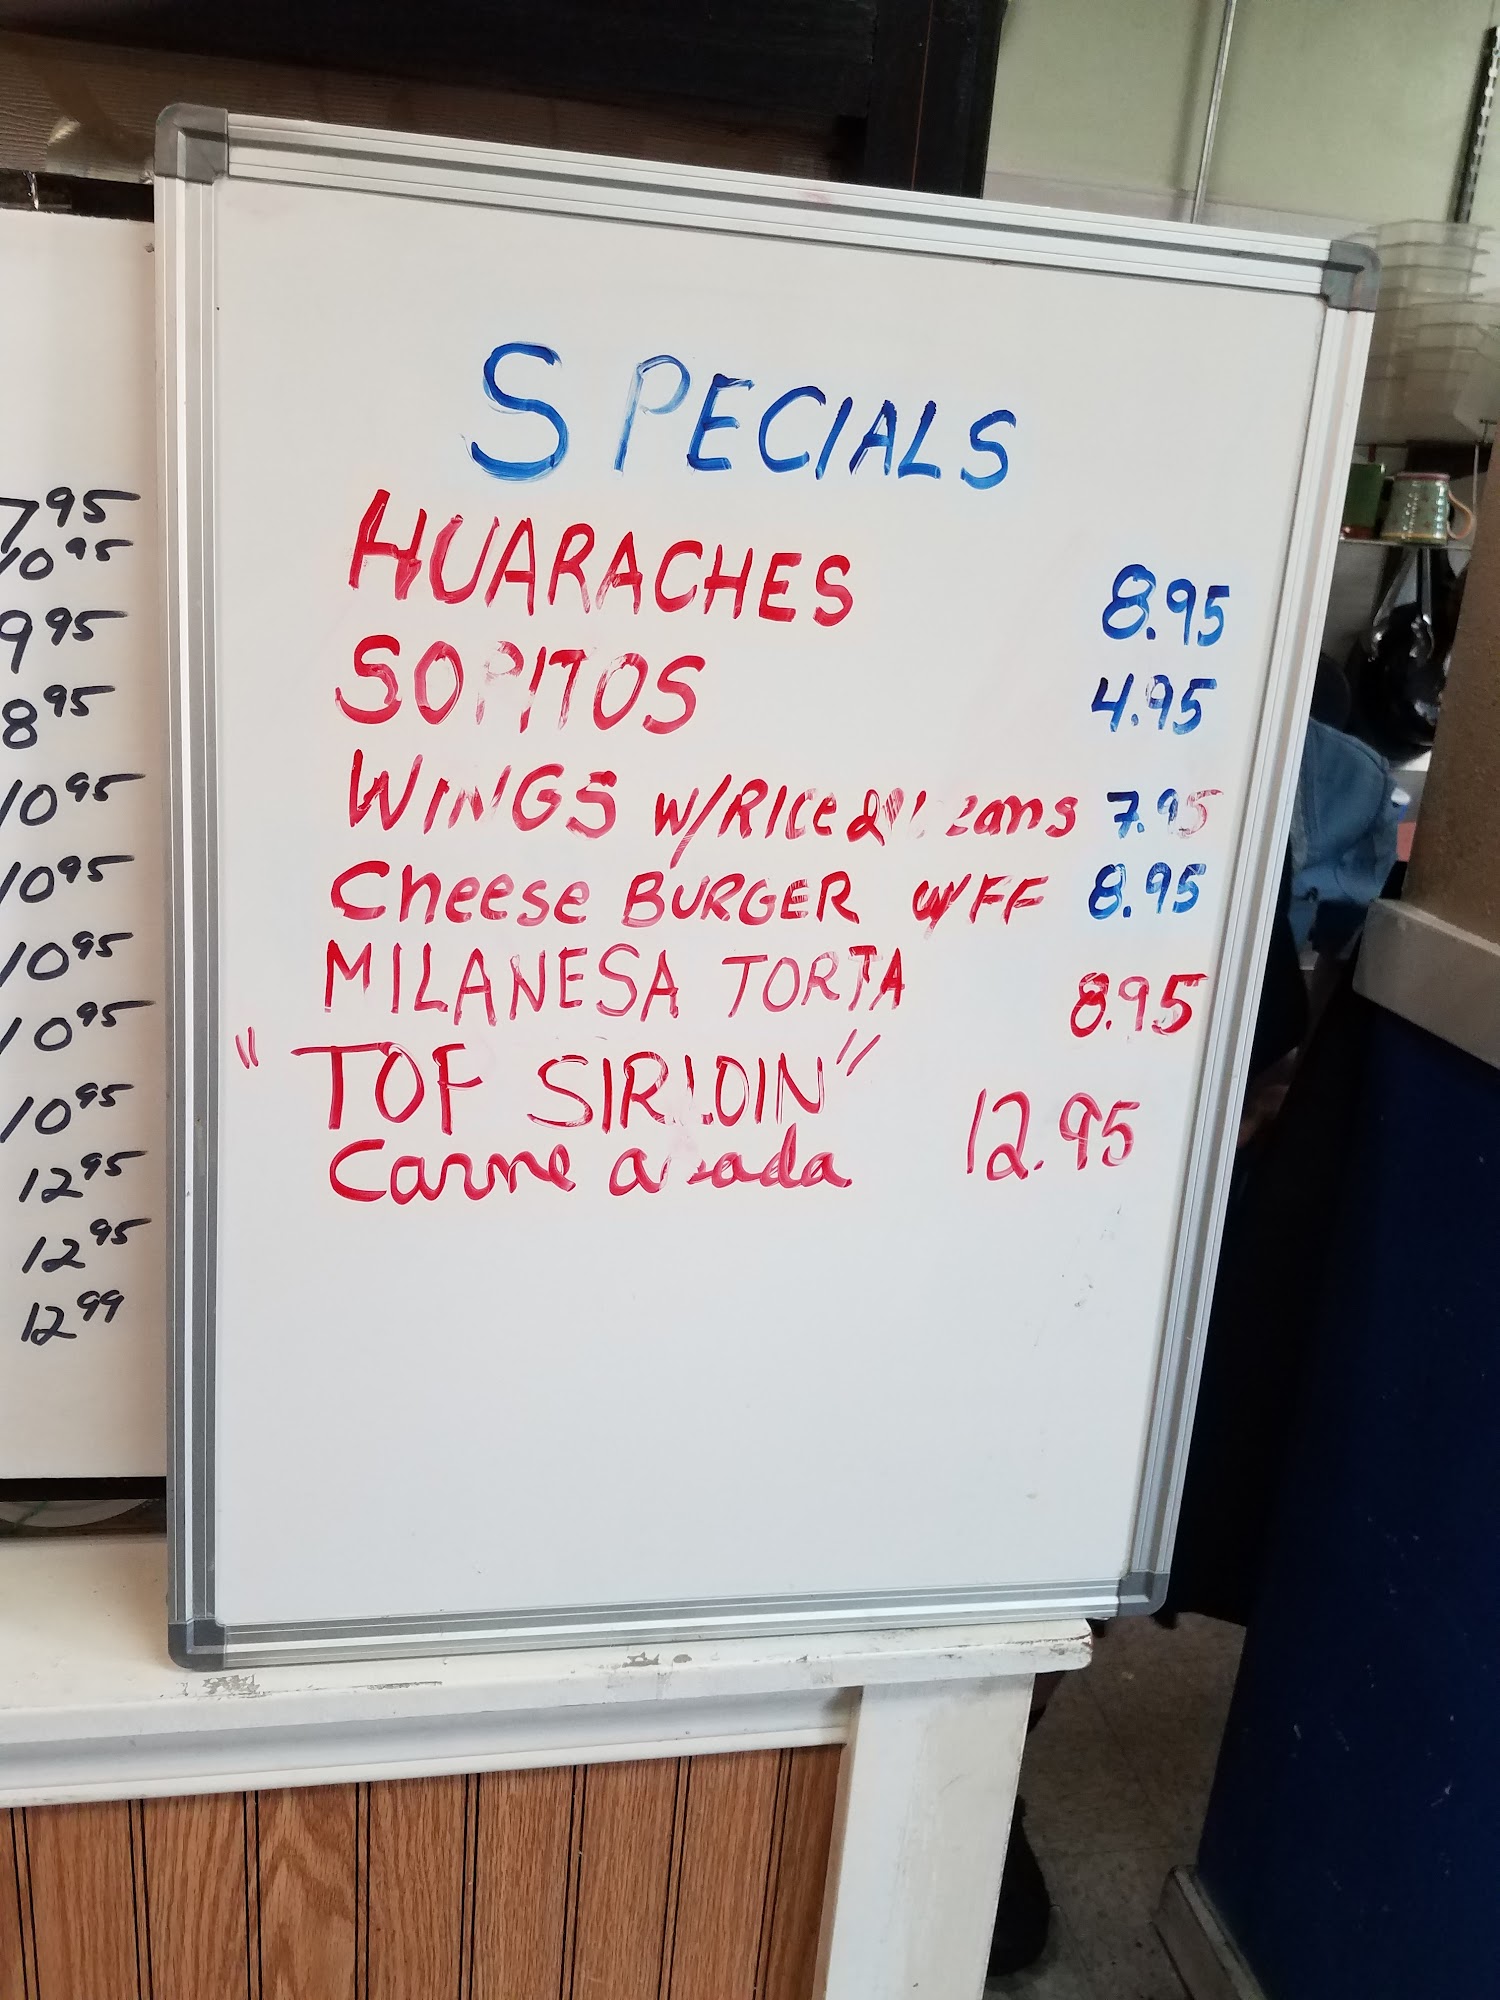 7 95
10 95
9 95
8 95
10 95
10 95
10 95
10 95
10 95
12 95
12 95
12 99
SPECIALS
HUARACHES 8.95
SOPITOS 4.95
WINGS w/RICe & beans 7.95
Cheese BURGER w/FF 8.95
MILANESA TORTA 8.95
"TOF SIRLOIN"
Carne asada 12.95